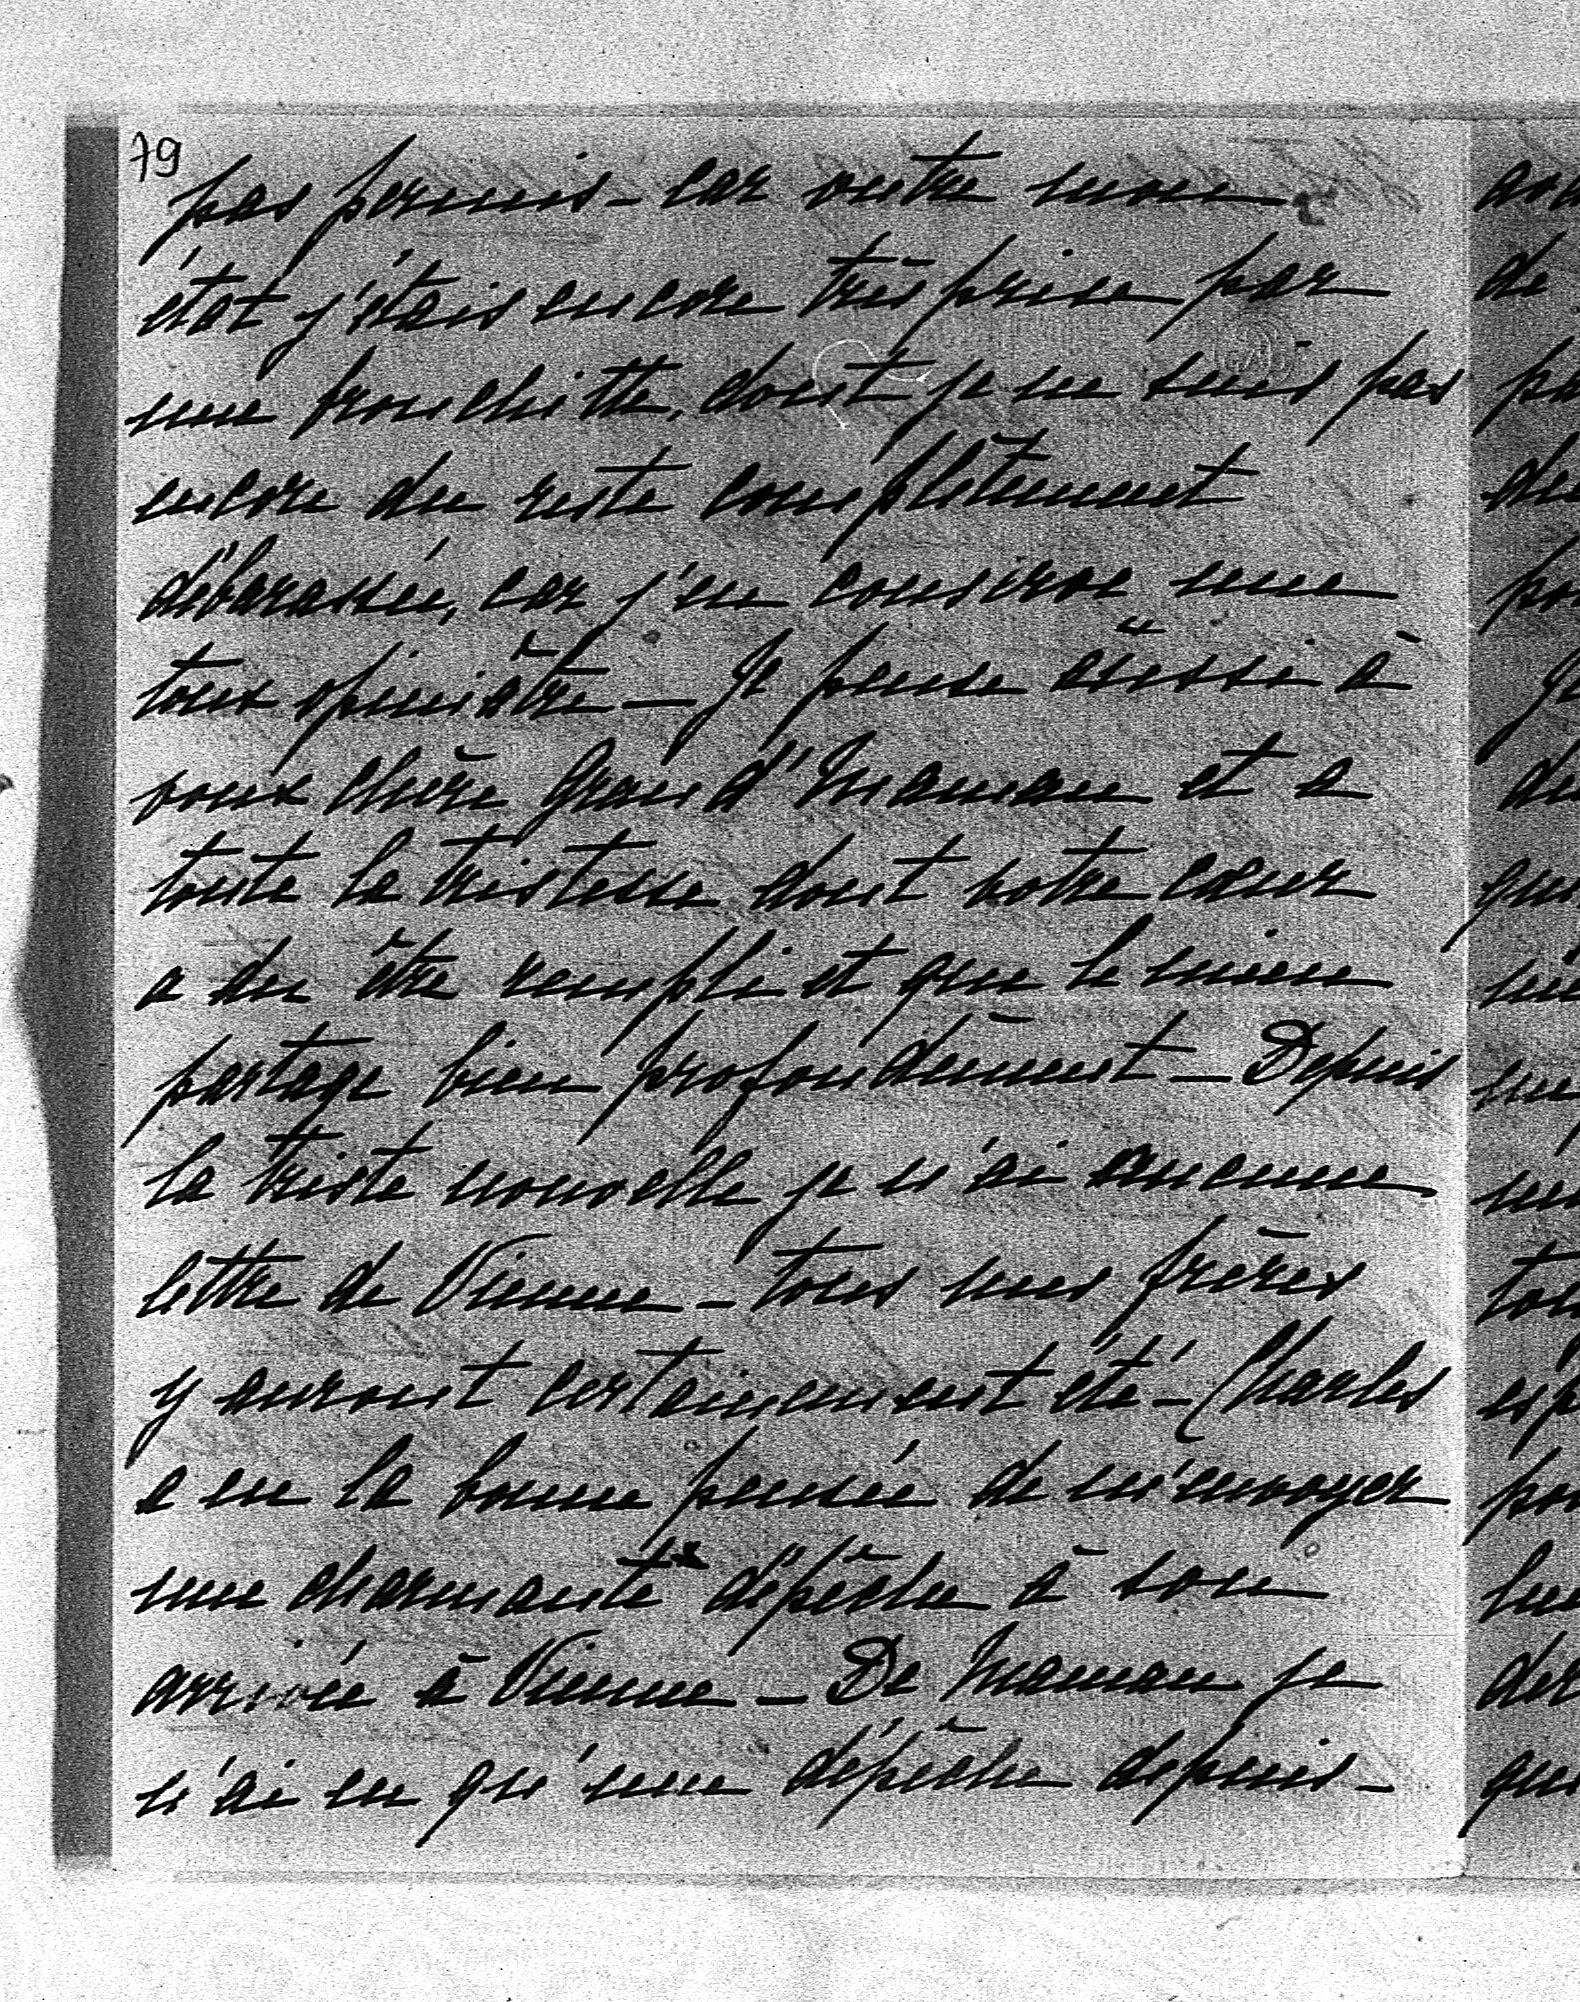 79
pas permis - car outre mon
état j'étais encore très prise par
une bronchitte, dont je ne suis pas
encore du reste complètement
débarassée, car j'en conserve une
toux opiniâtre - Je pense aussi à
vous chère Grand'Maman et a
toute la tristesse dont votre cœur
a du être rempli et que le mien
partage bien profondèment - Depuis
la triste nouvelle je n'ai aucune
lettre de Vienne - tous mes frères
y auront certainement été - Charles
a eu la bonne pensée de m'envoyer
une charmante dépêche à son
arrivée à Vienne - De Maman je
n'ai eu qu'une dépêche depuis -